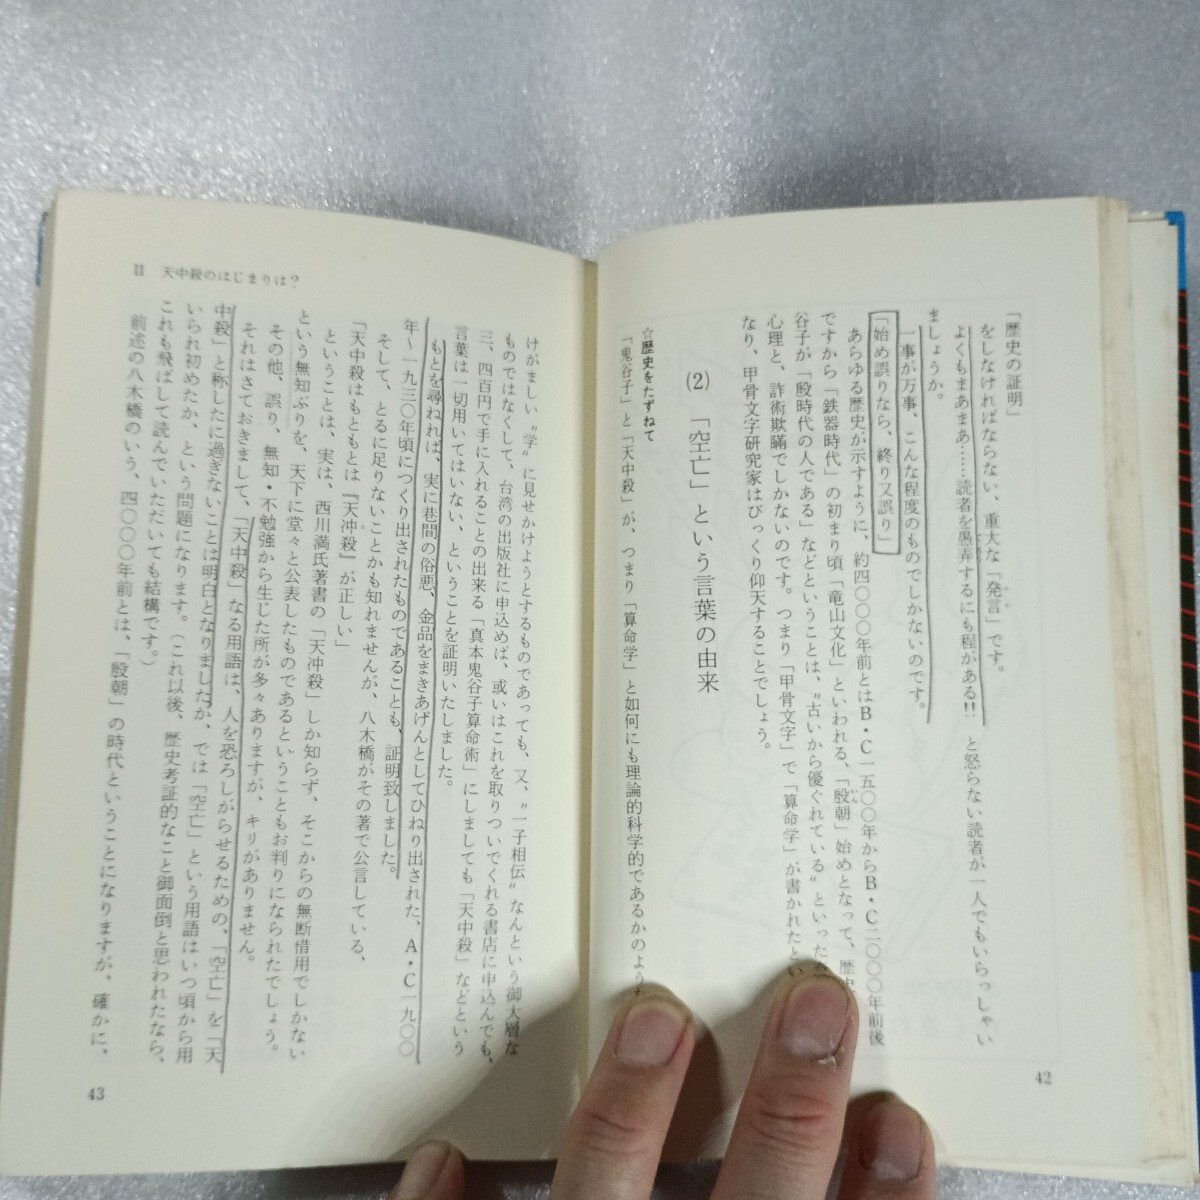 「歴史の証明」
をしなければならない、重大な「発言」です。
よくもまあまあ……読者を愚弄するにも程がある!! と怒らない読者が一人でもいらっしゃい
ましょうか。
一事が万事、こんな程度のものでしかないのです。
「始め誤りなら、終り又誤り」
あらゆる歴史が示すように、約四〇〇〇年前とはB・C一五〇〇年からB・C二〇〇〇年前後
ですから「鉄器時代」の初まり頃「竜山文化」といわれる、「殷朝」始めとなって、歴史
谷子が「殷時代の人である」などということは、"古いから優ぐれている"といった
心理と、詐術欺瞞でしかないのです。つまり「甲骨文字」で「算命学」が書かれたとい
なり、甲骨文字研究家はびっくり仰天することでしょう。
(2) 「空亡」という言葉の由来
☆歴史をたずねて
「鬼谷子」と「天中殺」が、つまり「算命学」と如何にも理論的科学的であるかのような
42
II 天中殺のはじまりは?
けがましい"学"に見せかけようとするものであっても、又、"一子相伝"なんという御大層な
ものではなくして、台湾の出版社に申込めば、或いはこれを取りついでくれる書店に申込んでも、
三、四百円で手に入れることの出来る「真本鬼谷子算命術」にしましても「天中殺」などという
言葉は一切用いてはいない、ということを証明いたしました。
もとを尋ねれば、実に巷間の俗悪、金品をまきあげんとしてひねり出された、A・C一九〇〇
年〜一九三〇年頃につくり出されたものであることも、証明致しました。
そして、とるに足りないことかも知れませんが、八木橋がその著で公言している、
「天中殺はもともとは『天沖殺』が正しい」
ということは、実は、西川満氏著書の「天沖殺」しか知らず、そこからの無断借用でしかない
という無知ぶりを、天下に堂々と公表したものであるということもお判りになられたでしょう。
その他、誤り、無知・不勉強から生じた所が多々ありますが、キリがありません。
それはさておきまして、「天中殺」なる用語は、人を恐ろしがらせるための、「空亡」を「天
中殺」と称したに過ぎないことは明白となりましたが、では「空亡」という用語はいつ頃から用
いられ初めたか、という問題になります。(これ以後、歴史考証的なこと御面倒と思われたなら、
これも飛ばして読んでいただいても結構です。)
前述の八木橋のいう、四〇〇〇年前は、「殷朝」の時代ということになりますが、確かに、
43